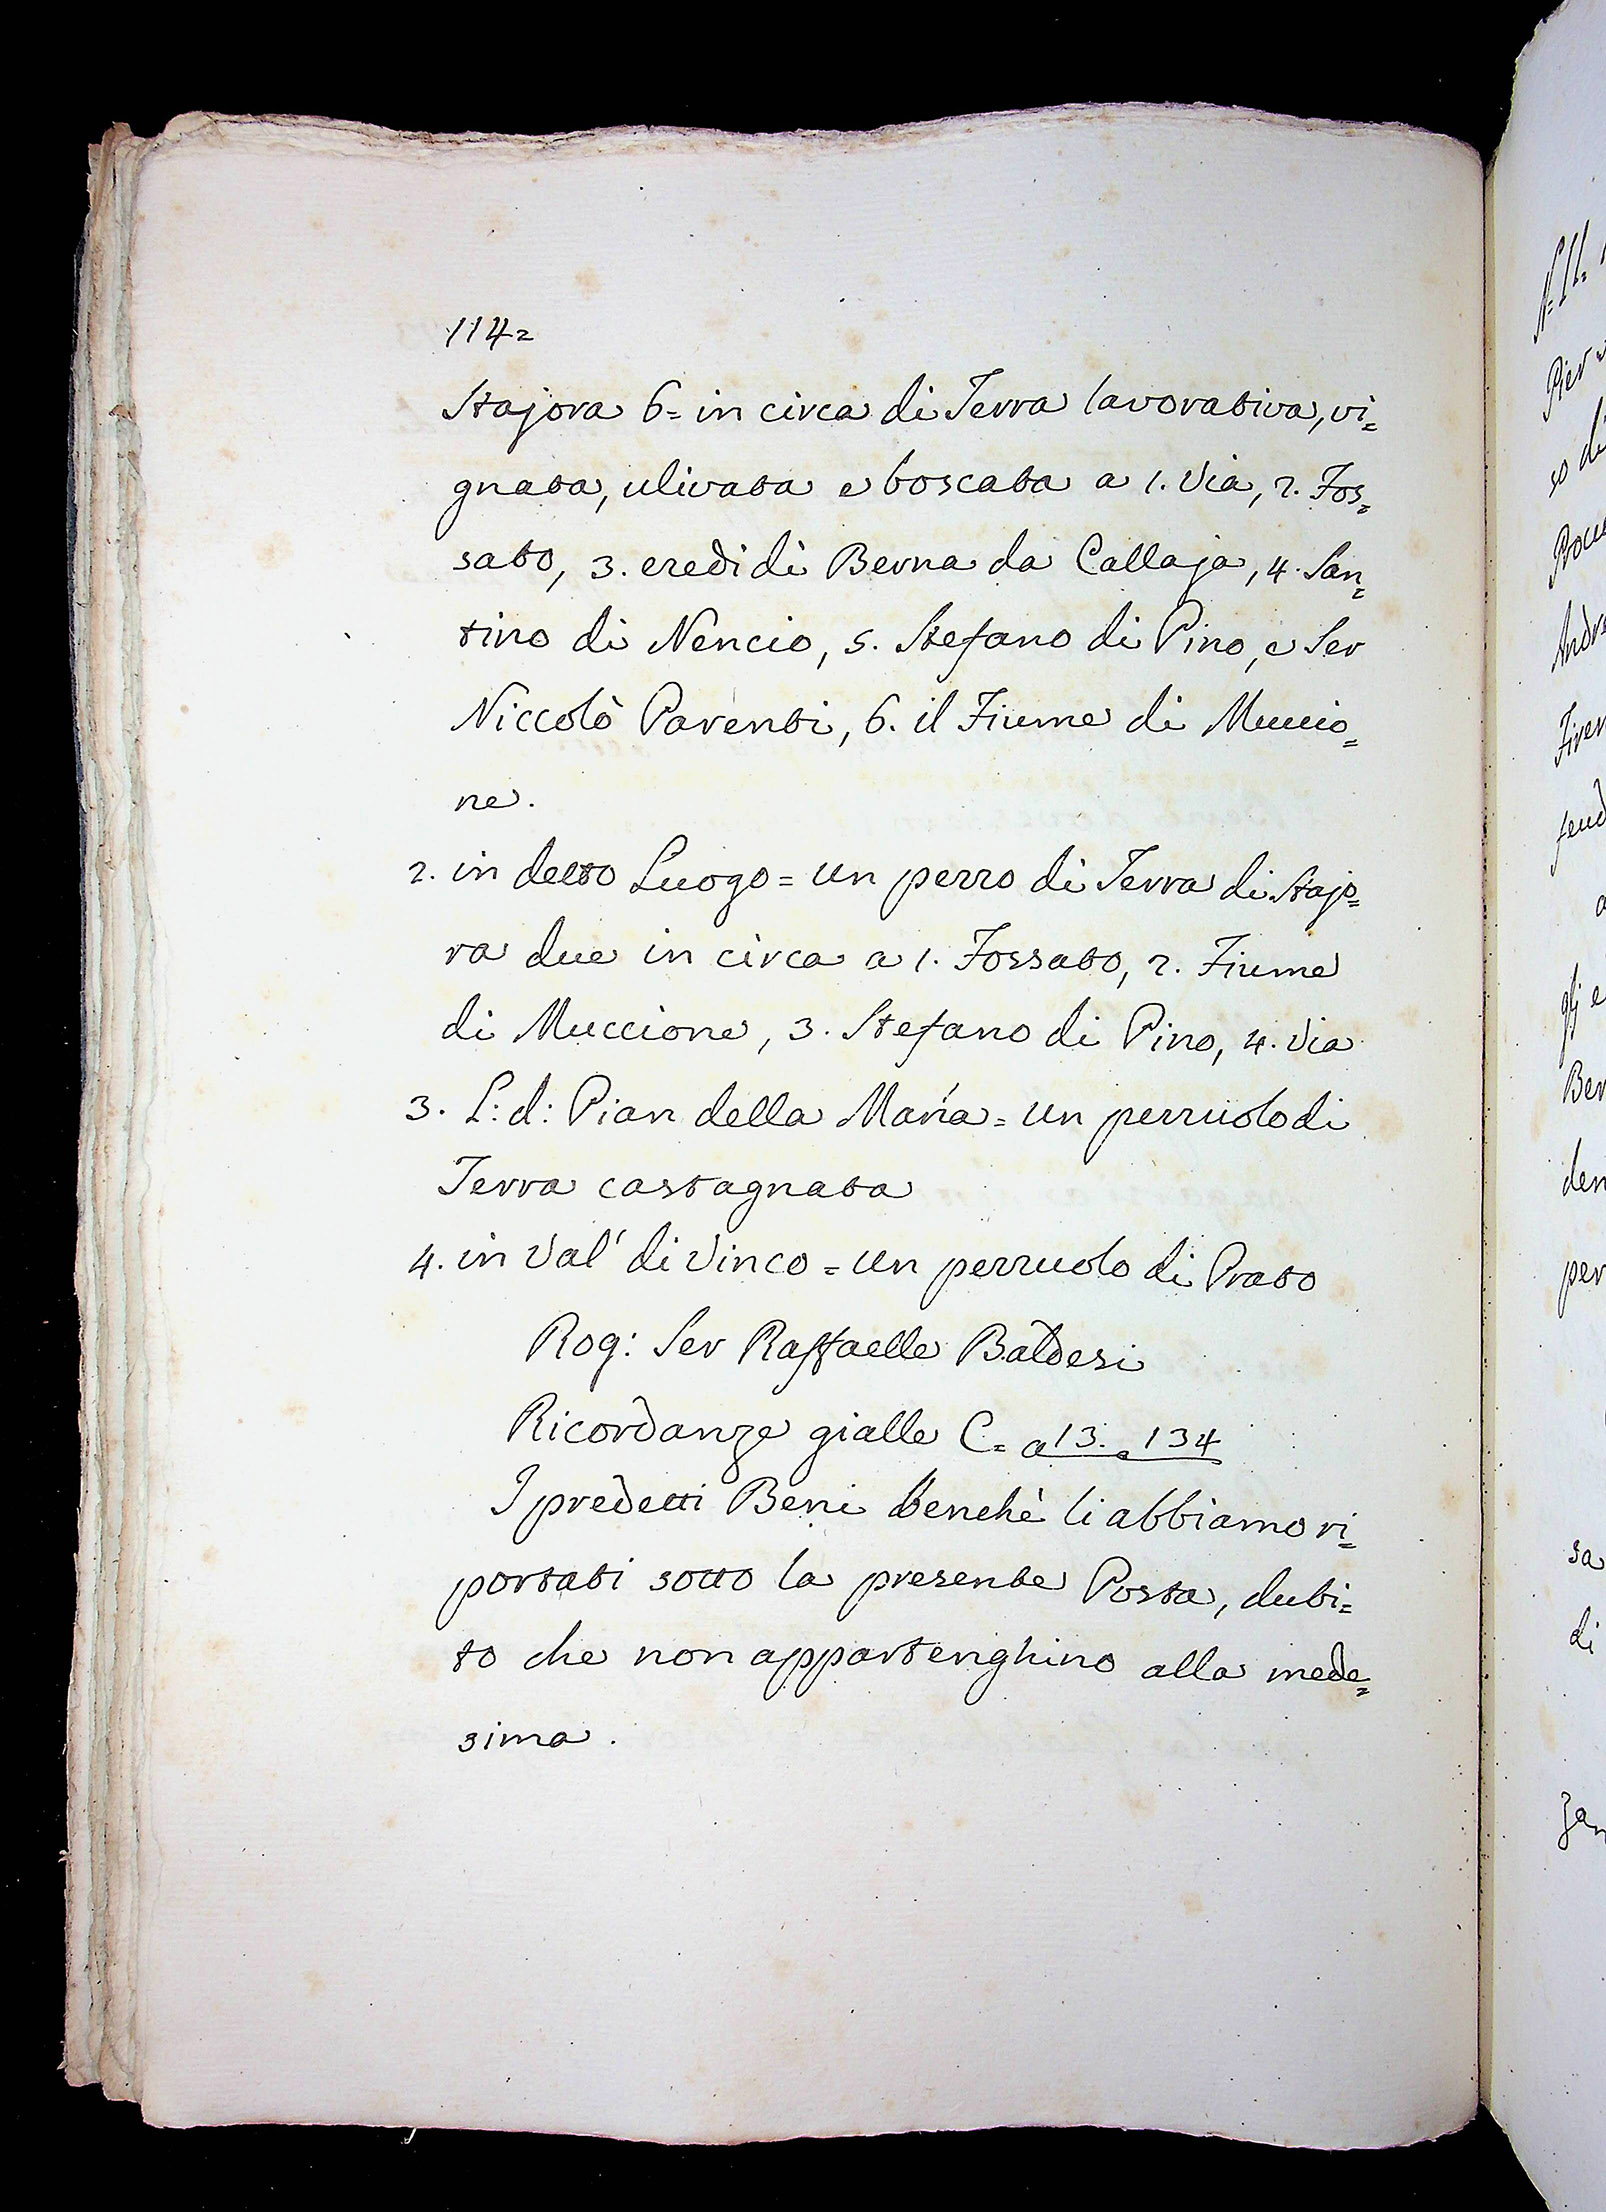 114=
Stajora 6= in circa di Terra lavorativa, vi=
gnata, ulivata e boscata a 1. Via, 2. Fos=
sato, 3. eredi di Berna da Callaja, 4. San=
tino di Nencio, 5. Stefano di Pino, e Ser
Niccolò Parenti, 6. il Fiume di Muccio=
ne.
2. in detto Luogo = un pezzo di Terra di Stajo=
ra due in circa a 1. Fossato, 2. Fiume
di Muccione, 3. Stefano di Pino, 4. Via
3. L: d: Pian della Marìa = un pezzuolo di
Terra castagnata
4. in Val' di Vinco = un pezzuolo di Prato
Rog: Ser Raffaelle Baldesi
Ricordanze gialle C= a 13. a 134
I predetti Beni benchè li abbiamo ri=
portati sotto la presente Posta, dubi=
to che non appartenghino alla mede=
sima.
Pier
di
Andre
Firen
gli e
Ber
den
per
sa
di